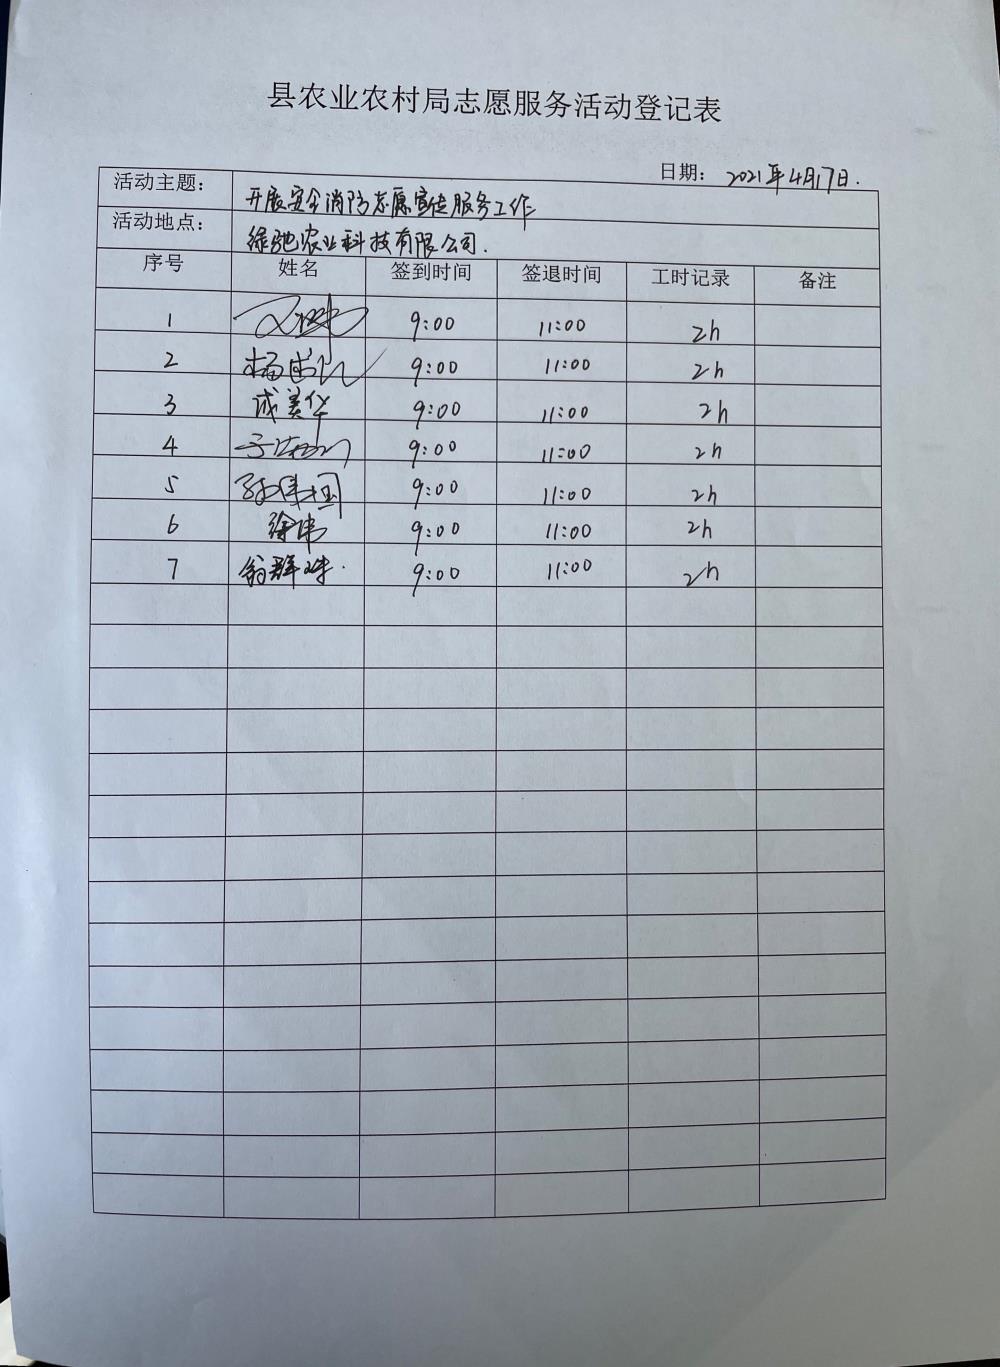 县农业农村局志愿服务活动登记表
日期： 2021年4月17日.
活动主题： 开展安全消防志愿宣传服务工作
活动地点： 绿驰农业科技有限公司.
序号 姓名 签到时间 签退时间 工时记录 备注
1 9:00 11:00 2h
2 杨 9:00 11:00 2h
3 成美华 9:00 11:00 2h
4 9:00 11:00 2h
5 国 9:00 11:00 2h
6 徐伟 9:00 11:00 2h
7 翁群 9:00 11:00 2h